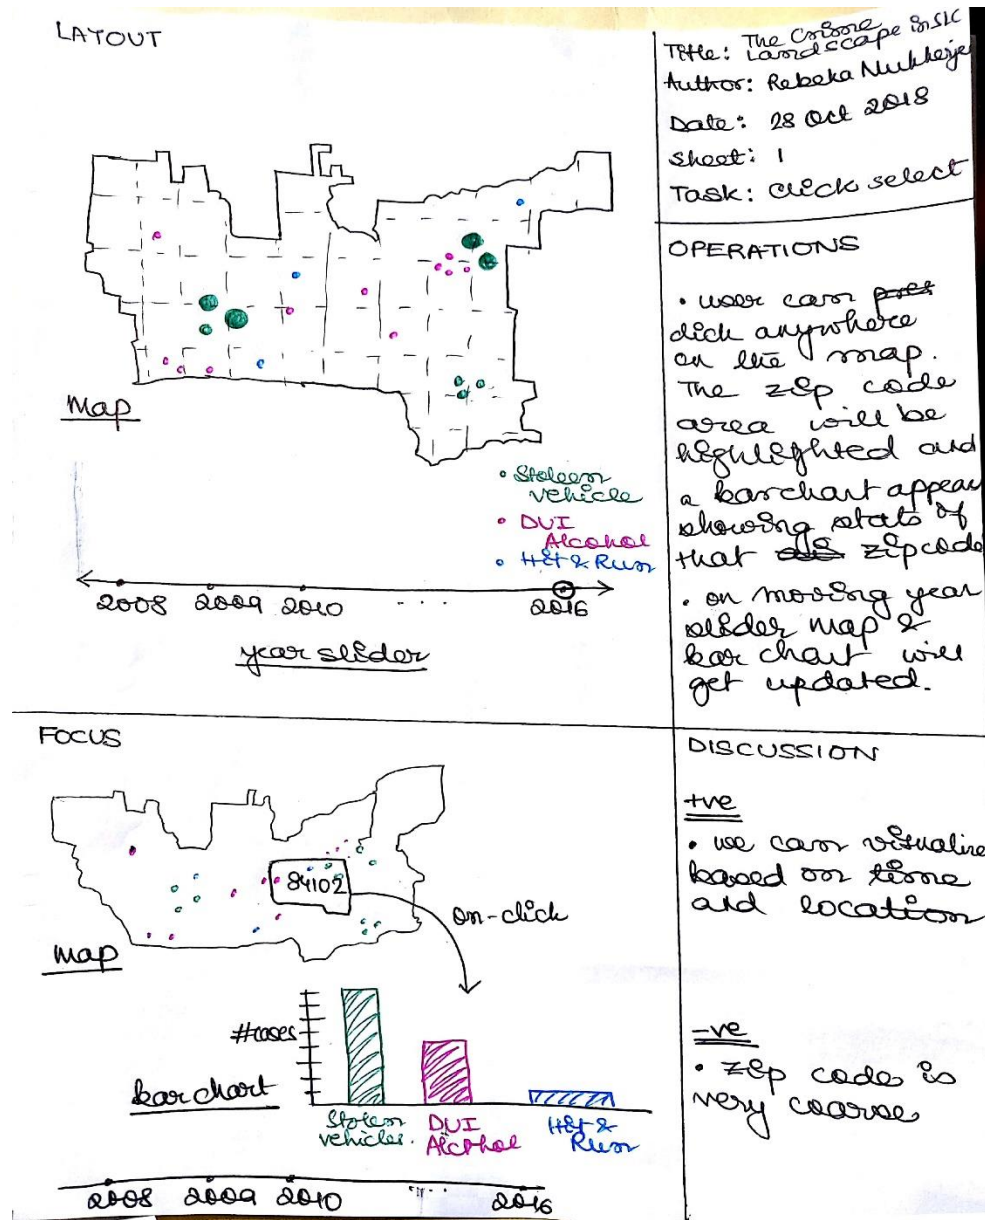 LAYOUT
Map
• Stoleen
vehicle
• DUI
Alcohol
• Hit & Run
2008 2009 2010 .... 2016
year slider
Title: The Crime
Landscape in SLC
Author: Rebeka Mukherjee
Date: 28 Oct 2018
Sheet: 1
Task: click select
OPERATIONS
• user can
click anywhere
on the map.
The zip code
area will be
highlighted and
a barchart appear
showing stats of
that zipcode
• on moving year
slider map &
bar chart will
get updated.
FOCUS
84102
on-click
Map
#cases
bar chart
Stolen
vehicles.
DUI
Alcohol
Hit &
Run
2008 2009 2010 .... 2016
DISCUSSION
+ve
• we can visualize
based on time
and location
-ve
• zip code is
very coarse